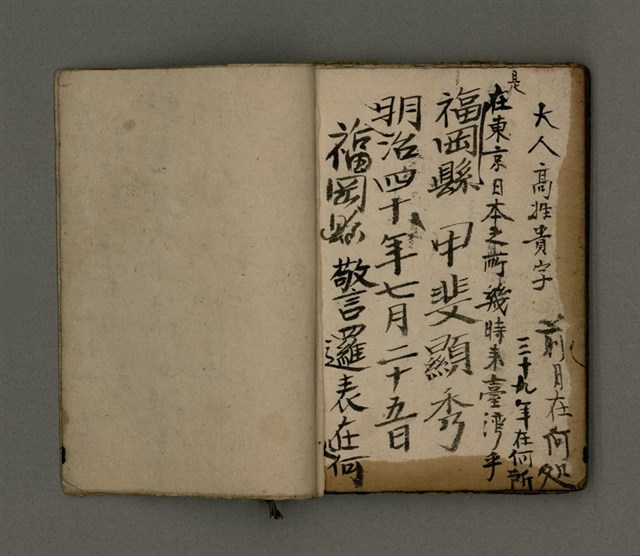 大人高姓貴字 前月在何処
三十九年在何所
是在東京日本之所幾時来臺湾乎
福岡縣 甲斐顯秀
明治四十年七月二十五日
福岡縣 警邏表在何